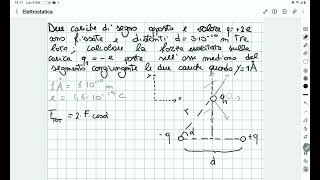 Elettrostatica
Due cariche di segno opposto e valore q=±2e
sono fissate e distanti d=3·10⁻¹⁰ m tra
loro; calcolare la forza esercitata sulla
carica q₁=-e posta sull'asse mediano del
segmento congiungente le due cariche quando l=1Å
1Å = 1·10⁻¹⁰ m
e = 1,6·10⁻¹⁹ C
F = 2·F cosα
q₁
-q
α
+q
d